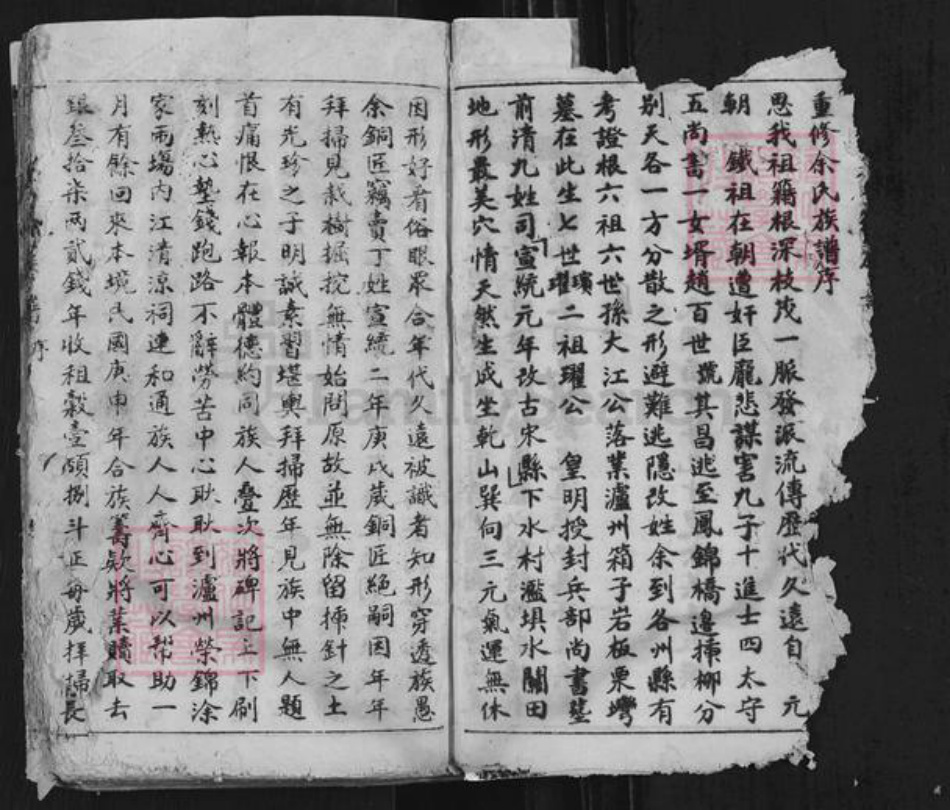 重修余氏族譜序
思我祖籍根深枝茂一脈發派流傳歷代久遠自 元
朝 鐵祖在朝遭奸臣龐悲謀害九子十進士四太守
五尚書一女壻趙百世號其昌逃至鳳錦橋邊揷柳分
別天各一方分散之形避難逃隱改姓余到各州縣有
考證根六祖六世孫大江公落業瀘州箱子岩板栗灣
墓在此生七世璸曜二祖曜公 皇明授封兵部尚書塟
前清九姓司宣統元年改古宋縣下水村濫垻水關田
地形最美穴情天然生成坐乾山巽向三元氣運無休
因形好看俗眼眾合年代久遠被識者知形穿透族愚
余銅匠竊賣丁姓宣統二年庚戌歲銅匠絕嗣因年年
拜掃見栽樹掘挖無情始問原故並無除留揷針之土
有光珍之子明誠素習堪輿拜掃歷年見族中無人題
首痛恨在心報本體德約同族人疊次將碑記上下刷
刻熱心墊錢跑路不辭勞苦中心耿耿到瀘州榮錦涂
家兩塲內江清涼祠連和通族人人齊心可以幫助一
月有餘回來本境民國庚申年合族籌欵將業贖取去
銀叁拾柒兩貳錢年收租穀壹碩捌斗正每歲拜掃長
序